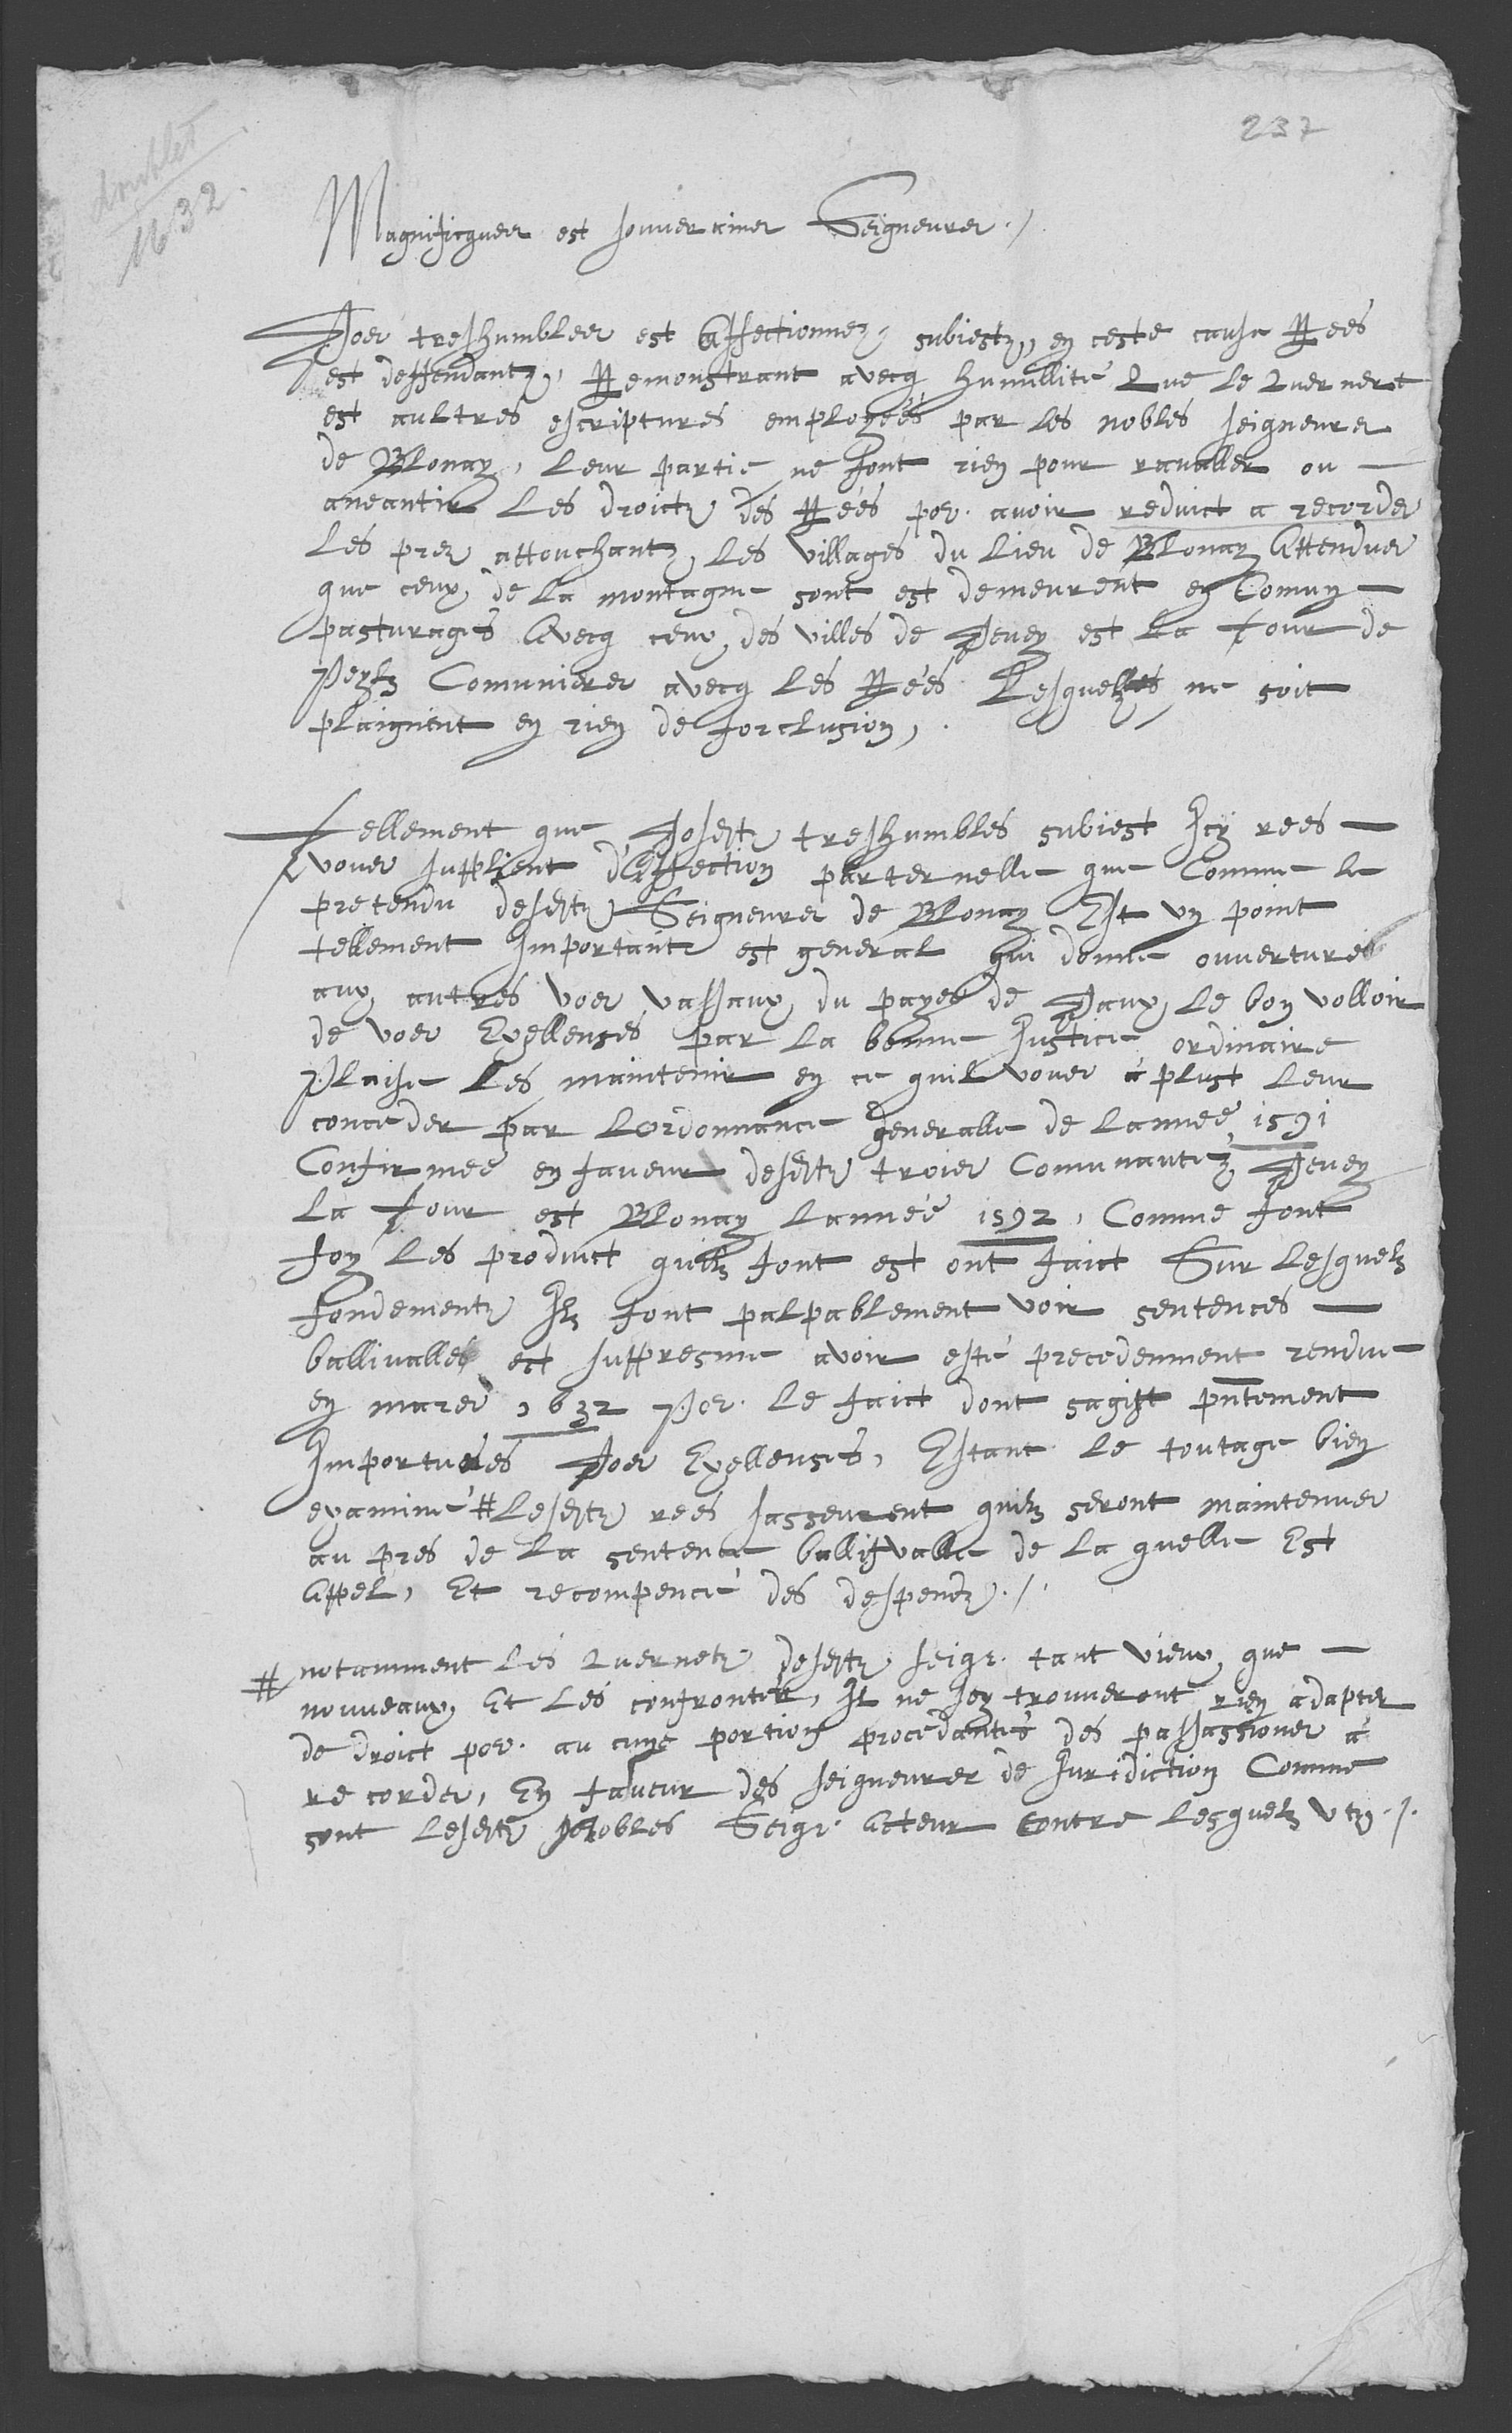 237
doublet
1632
Magnificques est souveraines Seigneures ./.
Vos treshumbles est Affectionnez subiestz, en ceste cause Rées
est deffendantz, Remonstrant avecq humillité Que le Quernert
est aultres escriptures employées par les nobles seigneures
de Blonay, leur partie ne font rien pour ravaller ou
aneantir les droictz des Rées por. avoir reduict a recorder
les prez attouchantz, les villages du lieu de Blonay Attendues
que ceux de la montagne sont est demeurent en Comun
pasturages Avecq ceux des villes de Vevey est la Tour de
Peylz Comunieres avecq les Rées Lesquelles ne soit
plaignent en rien de forclusion,
Tellement que Vosdtz treshumbles subiest Icy rees
vous supplient d'Affection parternelle que Comme le
pretendu desdtz Seigneures de Blonay Est un point
tellement important est general qui donne ouvertures
aux autres vos vassaux du payes de Vaux, le bon volloir
de vos Exellenses par la bonne Justice ordinaire
Plaise les maintenir en ce quil vous a plust leur
conceder par l'ordonnance generalle de lannee 1591
Confirmée en faveur desdtz trois Comunautéz Vevey
la Tour est Blonay lannée 1592, Comme font
foy les product quilz font est ont faict Sur lesquelz
fondementz Ilz font palpablement voir sentences
ballivalles est suppresme avoir esté precedemment rendue
en mars 1632 Por. le faict dont sagist pntement
Importunées Vos Exellenses, Estant le toutage bien
examiné # lesdtz rées sasseurent quilz seront maintenues
au pres de la sentence ballivalle de la quelle Est
Appel, Et recompence des despendz ./.
# notamment les Quernetz desdtz seigr. tant vieux que
nouveaux Et les confronter, Il ne sey trouveront rien adapter
de droict por. au cune portion procedantes des passassiones a
re corder, En faveur des seigneures de Juridiction Comme
sont lesdtz Nobles Seigr. Acteur Contre lesquelz